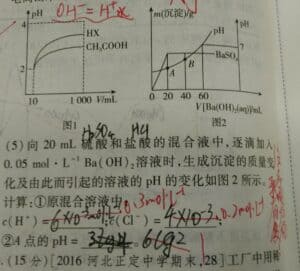 OH⁻ = H⁺水
pH
HX
CH₃COOH
4
2
10
1 000 V/mL
图1
m(沉淀)/g
pH
BaSO₄
A
B
0 20 40 60 80
V[Ba(OH)₂(aq)]/mL
图2
H₂SO₄ HCl
(5)向 20 mL 硫酸和盐酸的混合液中,逐滴加入
0.05 mol·L⁻¹ Ba(OH)₂溶液时,生成沉淀的质量变
化及由此而引起的溶液的 pH 的变化如图 2 所示。
计算:①原混合溶液中
c(H⁺)=6×10⁻³mol 0.3mol·L⁻¹ c(Cl⁻)=4×10⁻³ 0.2mol·L⁻¹
②A点的 pH=
(15 分)[2016 河北正定中学期末,28]工厂中用